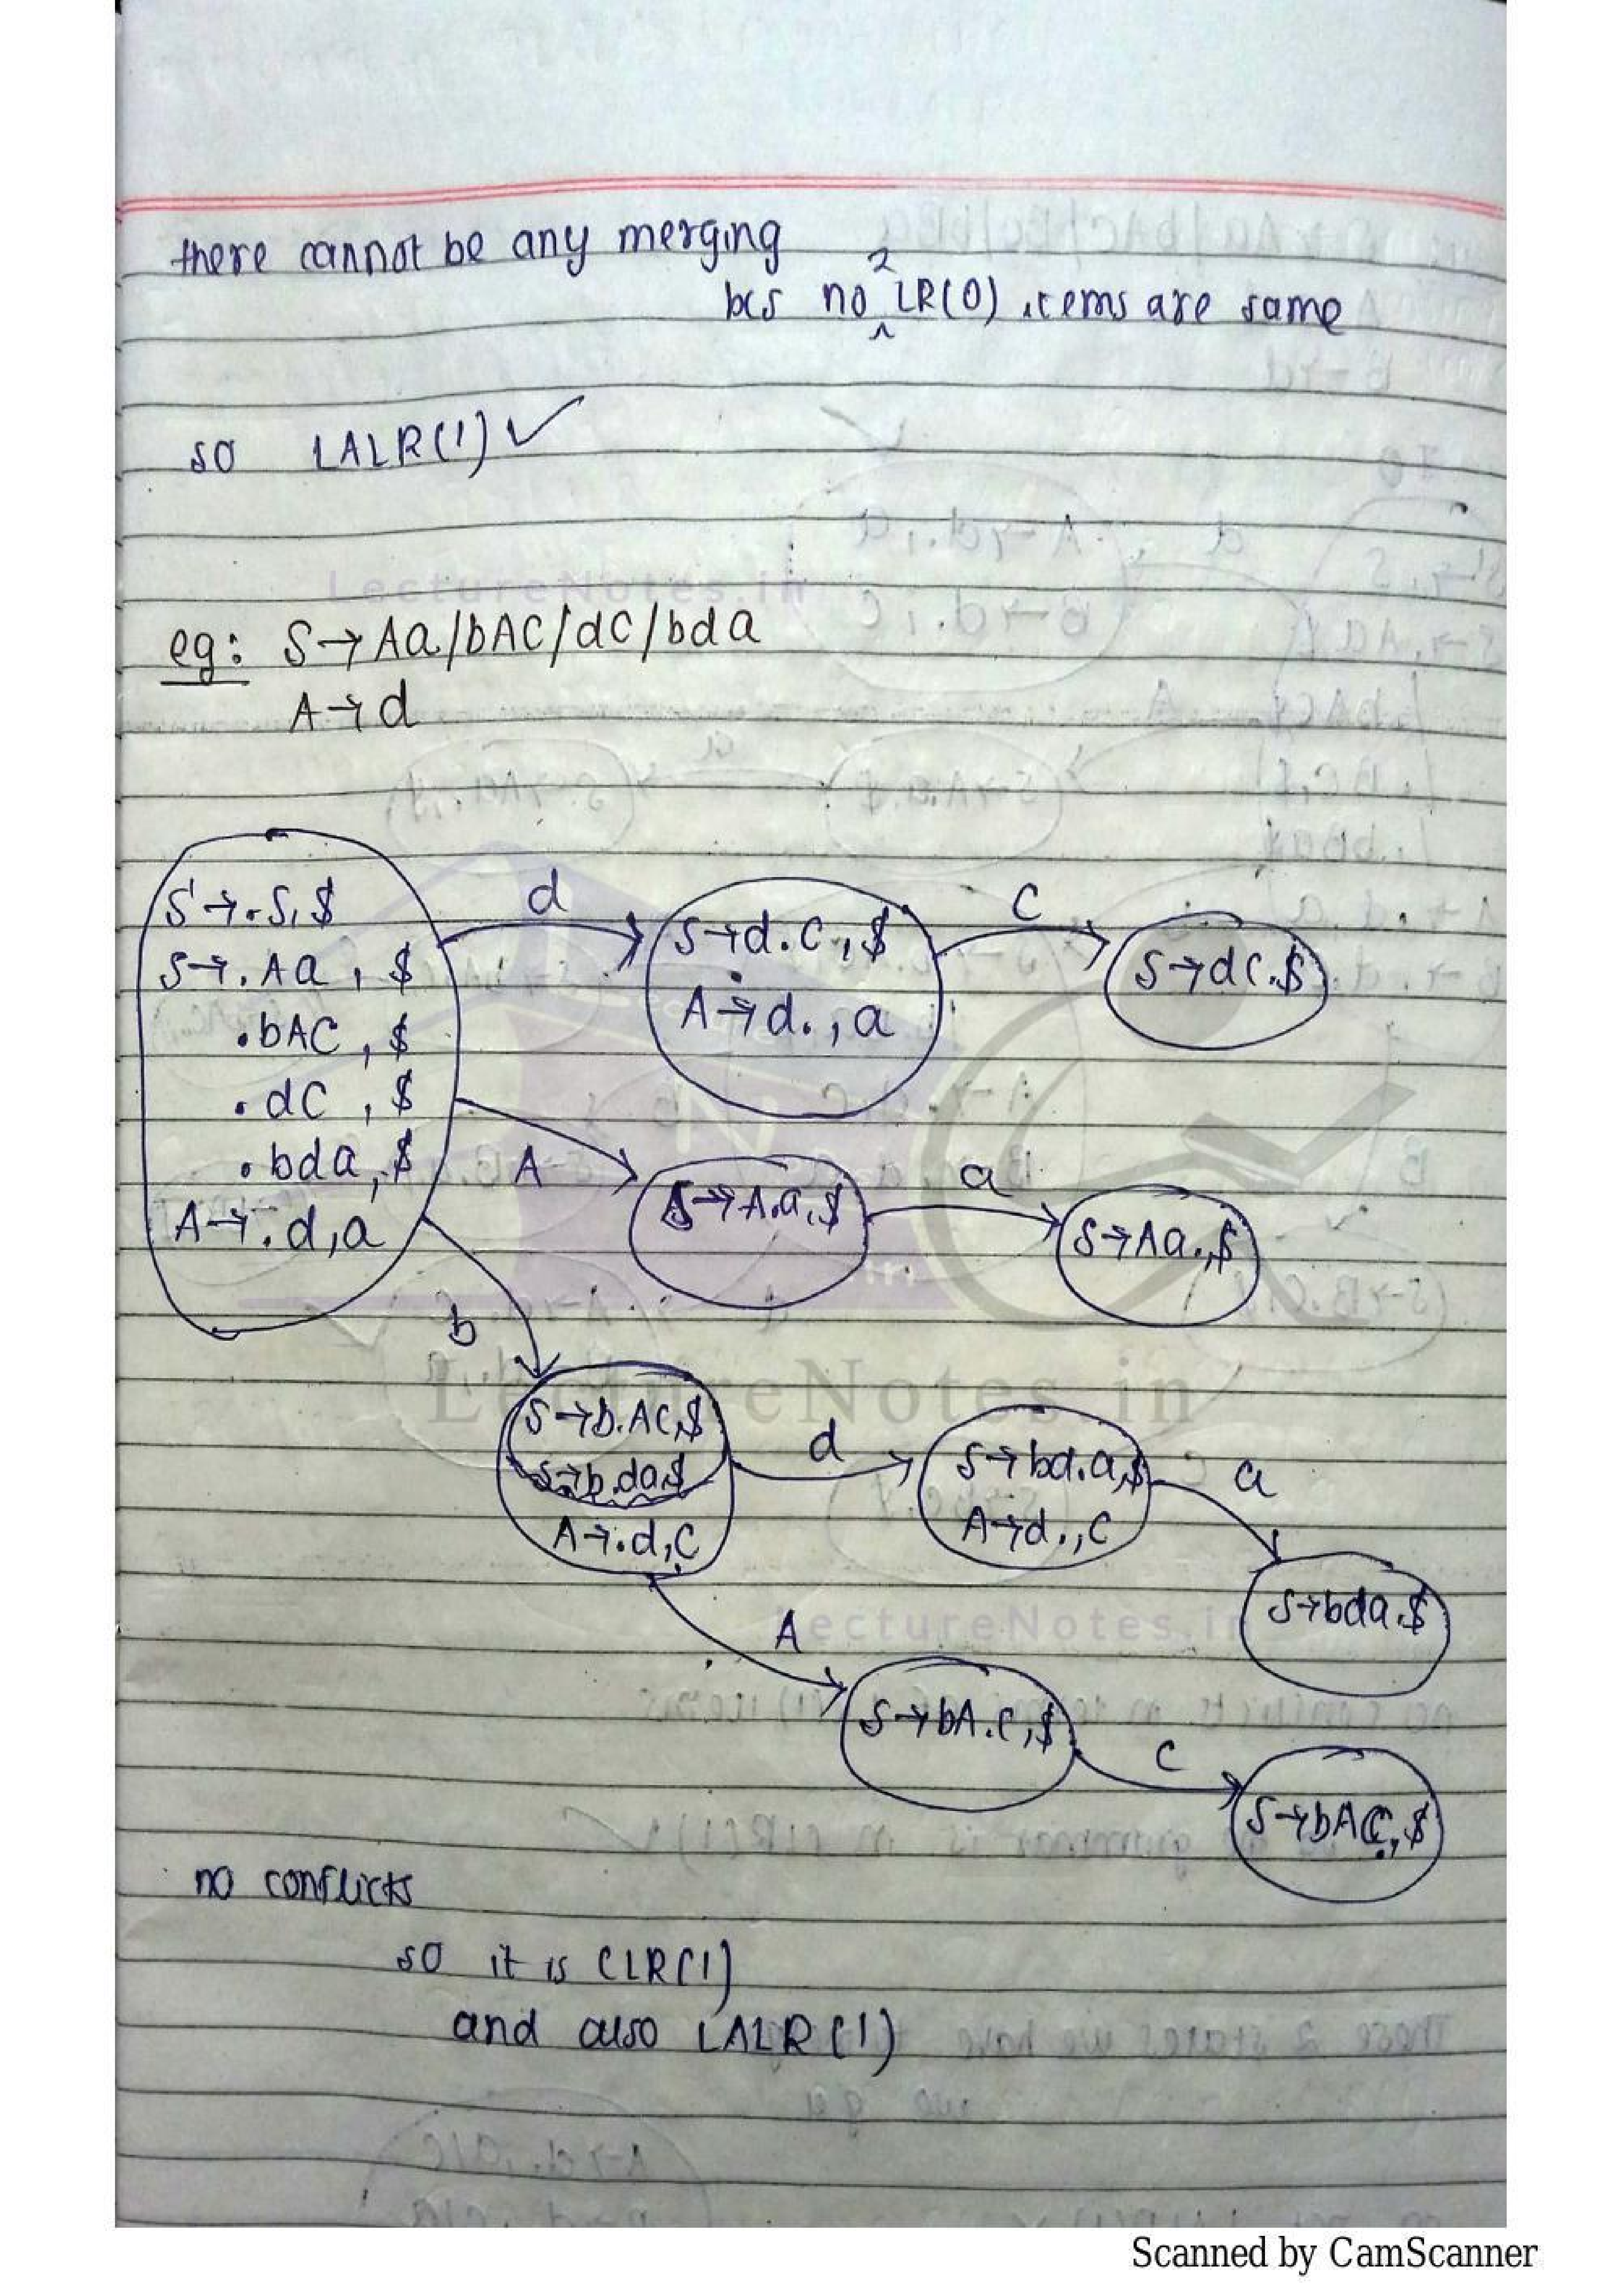 there cannot be any merging
bcs no 2 LR(0) items are same
so LALR(1) ✓
LectureNotes.in
eg: S→Aa/bAC/dC/bda
A→d
S'→.S,$
S→.Aa, $
.bAC, $
.dC, $
.bda,$
A→.d,a
d
S→d.C,$
A→d.,a
C
S→dC.$
A
S→A.a,$
a
S→Aa.,$
b
LectureNotes.in
S→b.AC,$
S→b.da$
A→.d,C
d
S→bd.a,$
A→d.,C
a
S→bda.$
LectureNotes.in
A
S→bA.C,$
C
S→bAC.,$
no conflicts
so it is CLR(1)
and also LALR(1)
Scanned by CamScanner